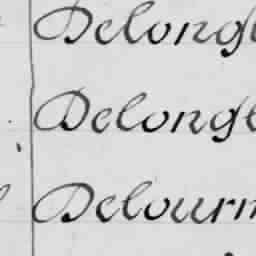 Delong
Delong
Delourn